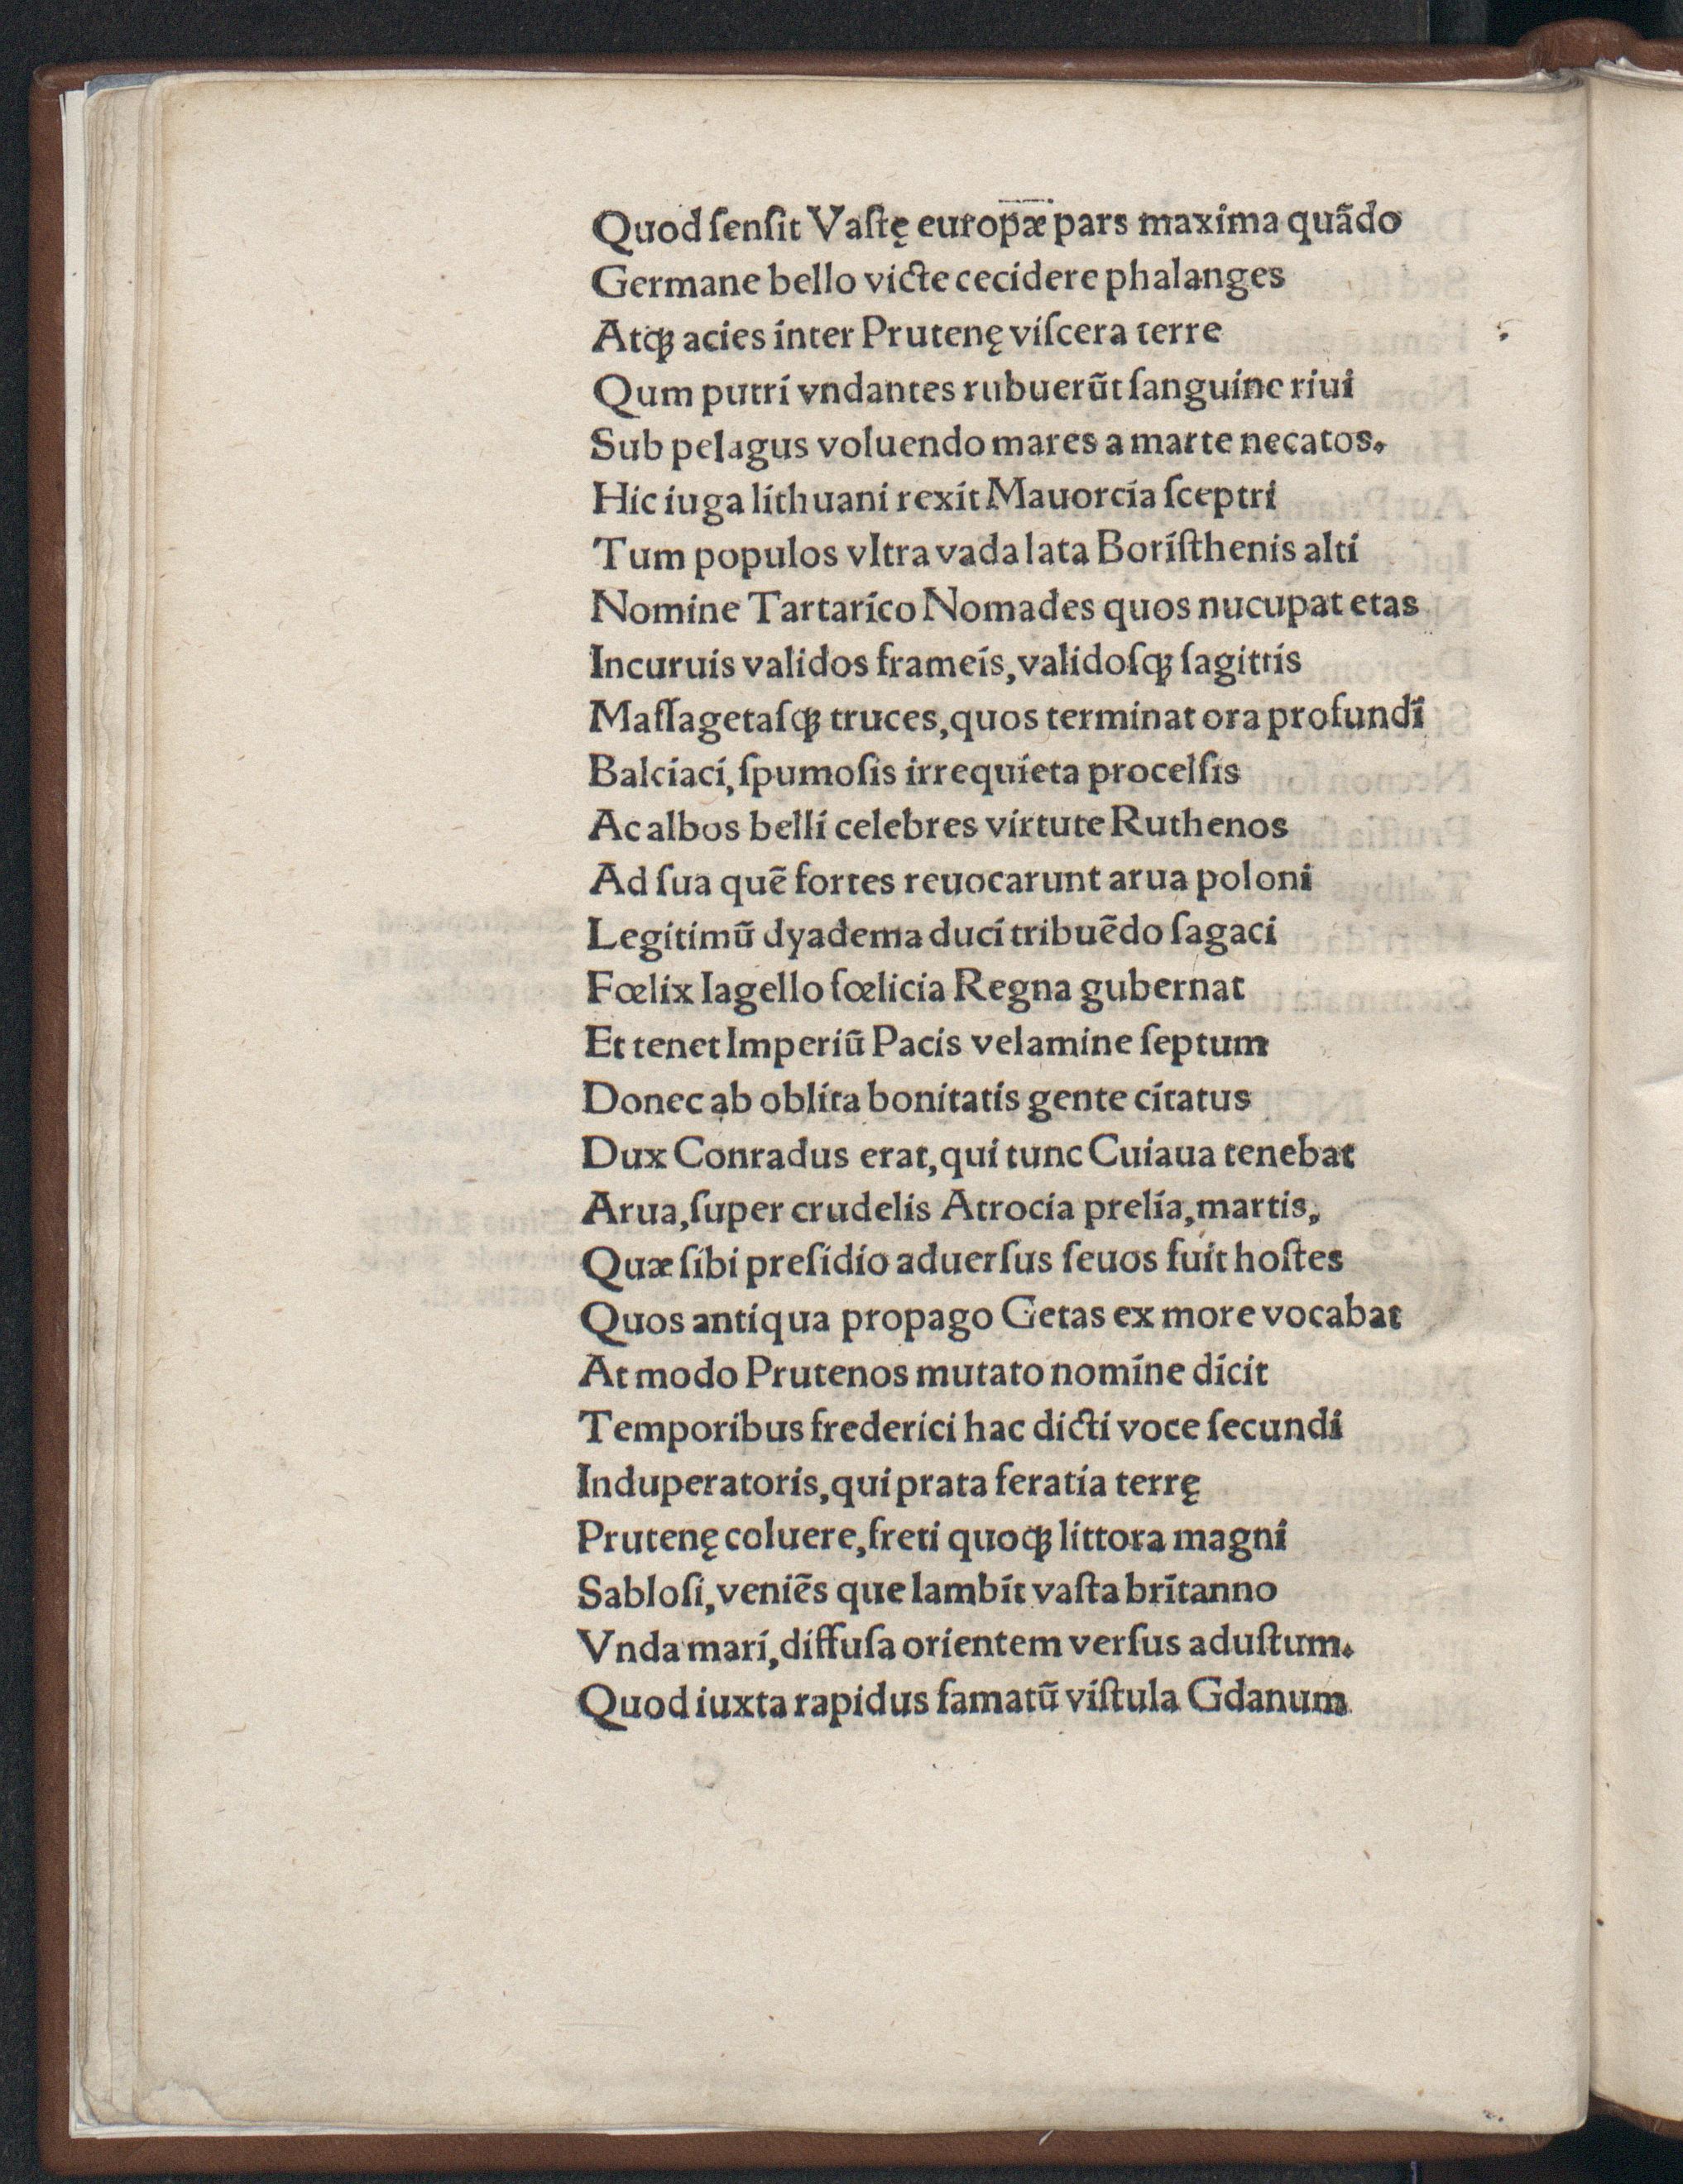 Quod ſenſit Vaſtę europæ pars maxima quãdo
Germane bello victe cecidere phalanges
Atqꝫ acies inter Prutenę viſcera terre
Qum putri vndantes rubuerũt ſanguine riui
Sub pelagus voluendo mares a marte necatos.
Hic iuga lithuani rexit Mauorcia ſceptri
Tum populos vltra vada lata Boriſthenis alti
Nomine Tartarico Nomades quos nucupat etas
Incuruis validos frameis, validoſqꝫ ſagittis
Maſſagetaſqꝫ truces, quos terminat ora profundi
Balciaci, ſpumoſis irrequieta procelſis
Ac albos belli celebres virtute Ruthenos
Ad ſua quẽ fortes reuocarunt arua poloni
Legitimũ dyadema duci tribuẽdo ſagaci
Fœlix Iagello fœlicia Regna gubernat
Et tenet Imperiũ Pacis velamine ſeptum
Donec ab oblita bonitatis gente citatus
Dux Conradus erat, qui tunc Cuiaua tenebat
Arua, ſuper crudelis Atrocia prelia, martis,
Quæ ſibi preſidio aduerſus ſeuos fuit hoſtes
Quos antiqua propago Getas ex more vocabat
At modo Prutenos mutato nomine dicit
Temporibus frederici hac dicti voce ſecundi
Induperatoris, qui prata feratia terrę
Prutenę coluere, freti quoqꝫ littora magni
Sabloſi, veniẽs que lambit vaſta britanno
Vnda mari, diffuſa orientem verſus aduſtum.
Quod iuxta rapidus famatũ viſtula Gdanum